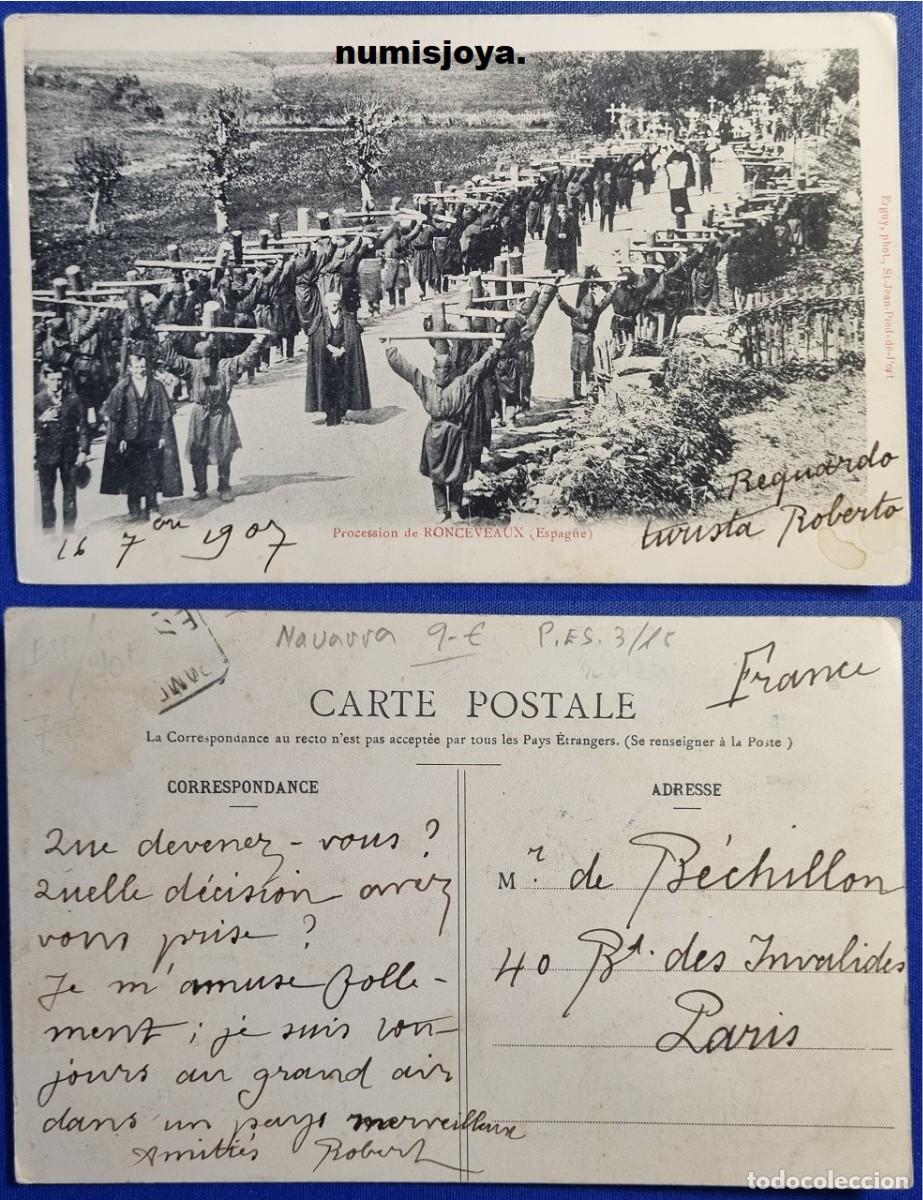 numisjoya.
Erguy, phot., St-Jean-Pied-de-Port
Procession de RONCEVEAUX (Espagne)
16 7bre 1907
Reguardo
turista Roberto
Navarra 9-€ P.ES. 3/18
France
CARTE POSTALE
La Correspondance au recto n'est pas acceptée par tous les Pays Étrangers. (Se renseigner à la Poste)
CORRESPONDANCE
Que devenez-vous?
Quelle décision avez
vous prise?
Je m'amuse folle-
ment; je suis tou-
jours au grand air
dans un pays merveilleux
Amitiés Robert
ADRESSE
Mr. de Béchillon
40 Bd. des Invalides
Paris
todocoleccion